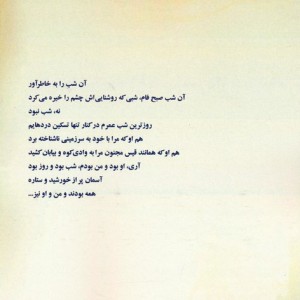 آن شب را به خاطرآور
آن شب صبح فام، شبی که روشنایی‌اش چشم را خیره می‌کرد
نه، شب نبود
روزترین شب عمرم در کنار تنها تسکین دردهایم
هم او که مرا با خود به سرزمینی ناشناخته برد
هم او که همانند قیس مجنون مرا به وادی کوه و بیابان کشید
آری، او بود و من بودم، شب بود و روز بود
آسمان پر از خورشید و ستاره
همه بودند و من و او نیز...